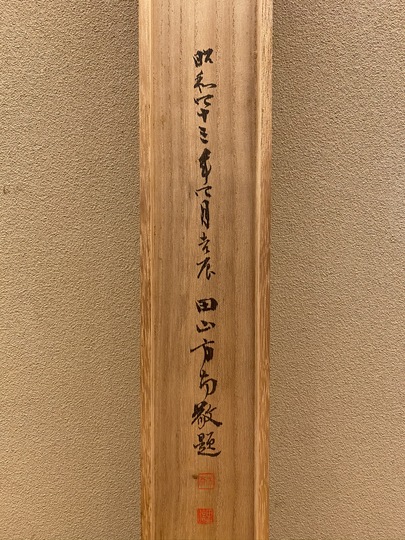 昭和四十三年四月吉辰 田山方南敬題